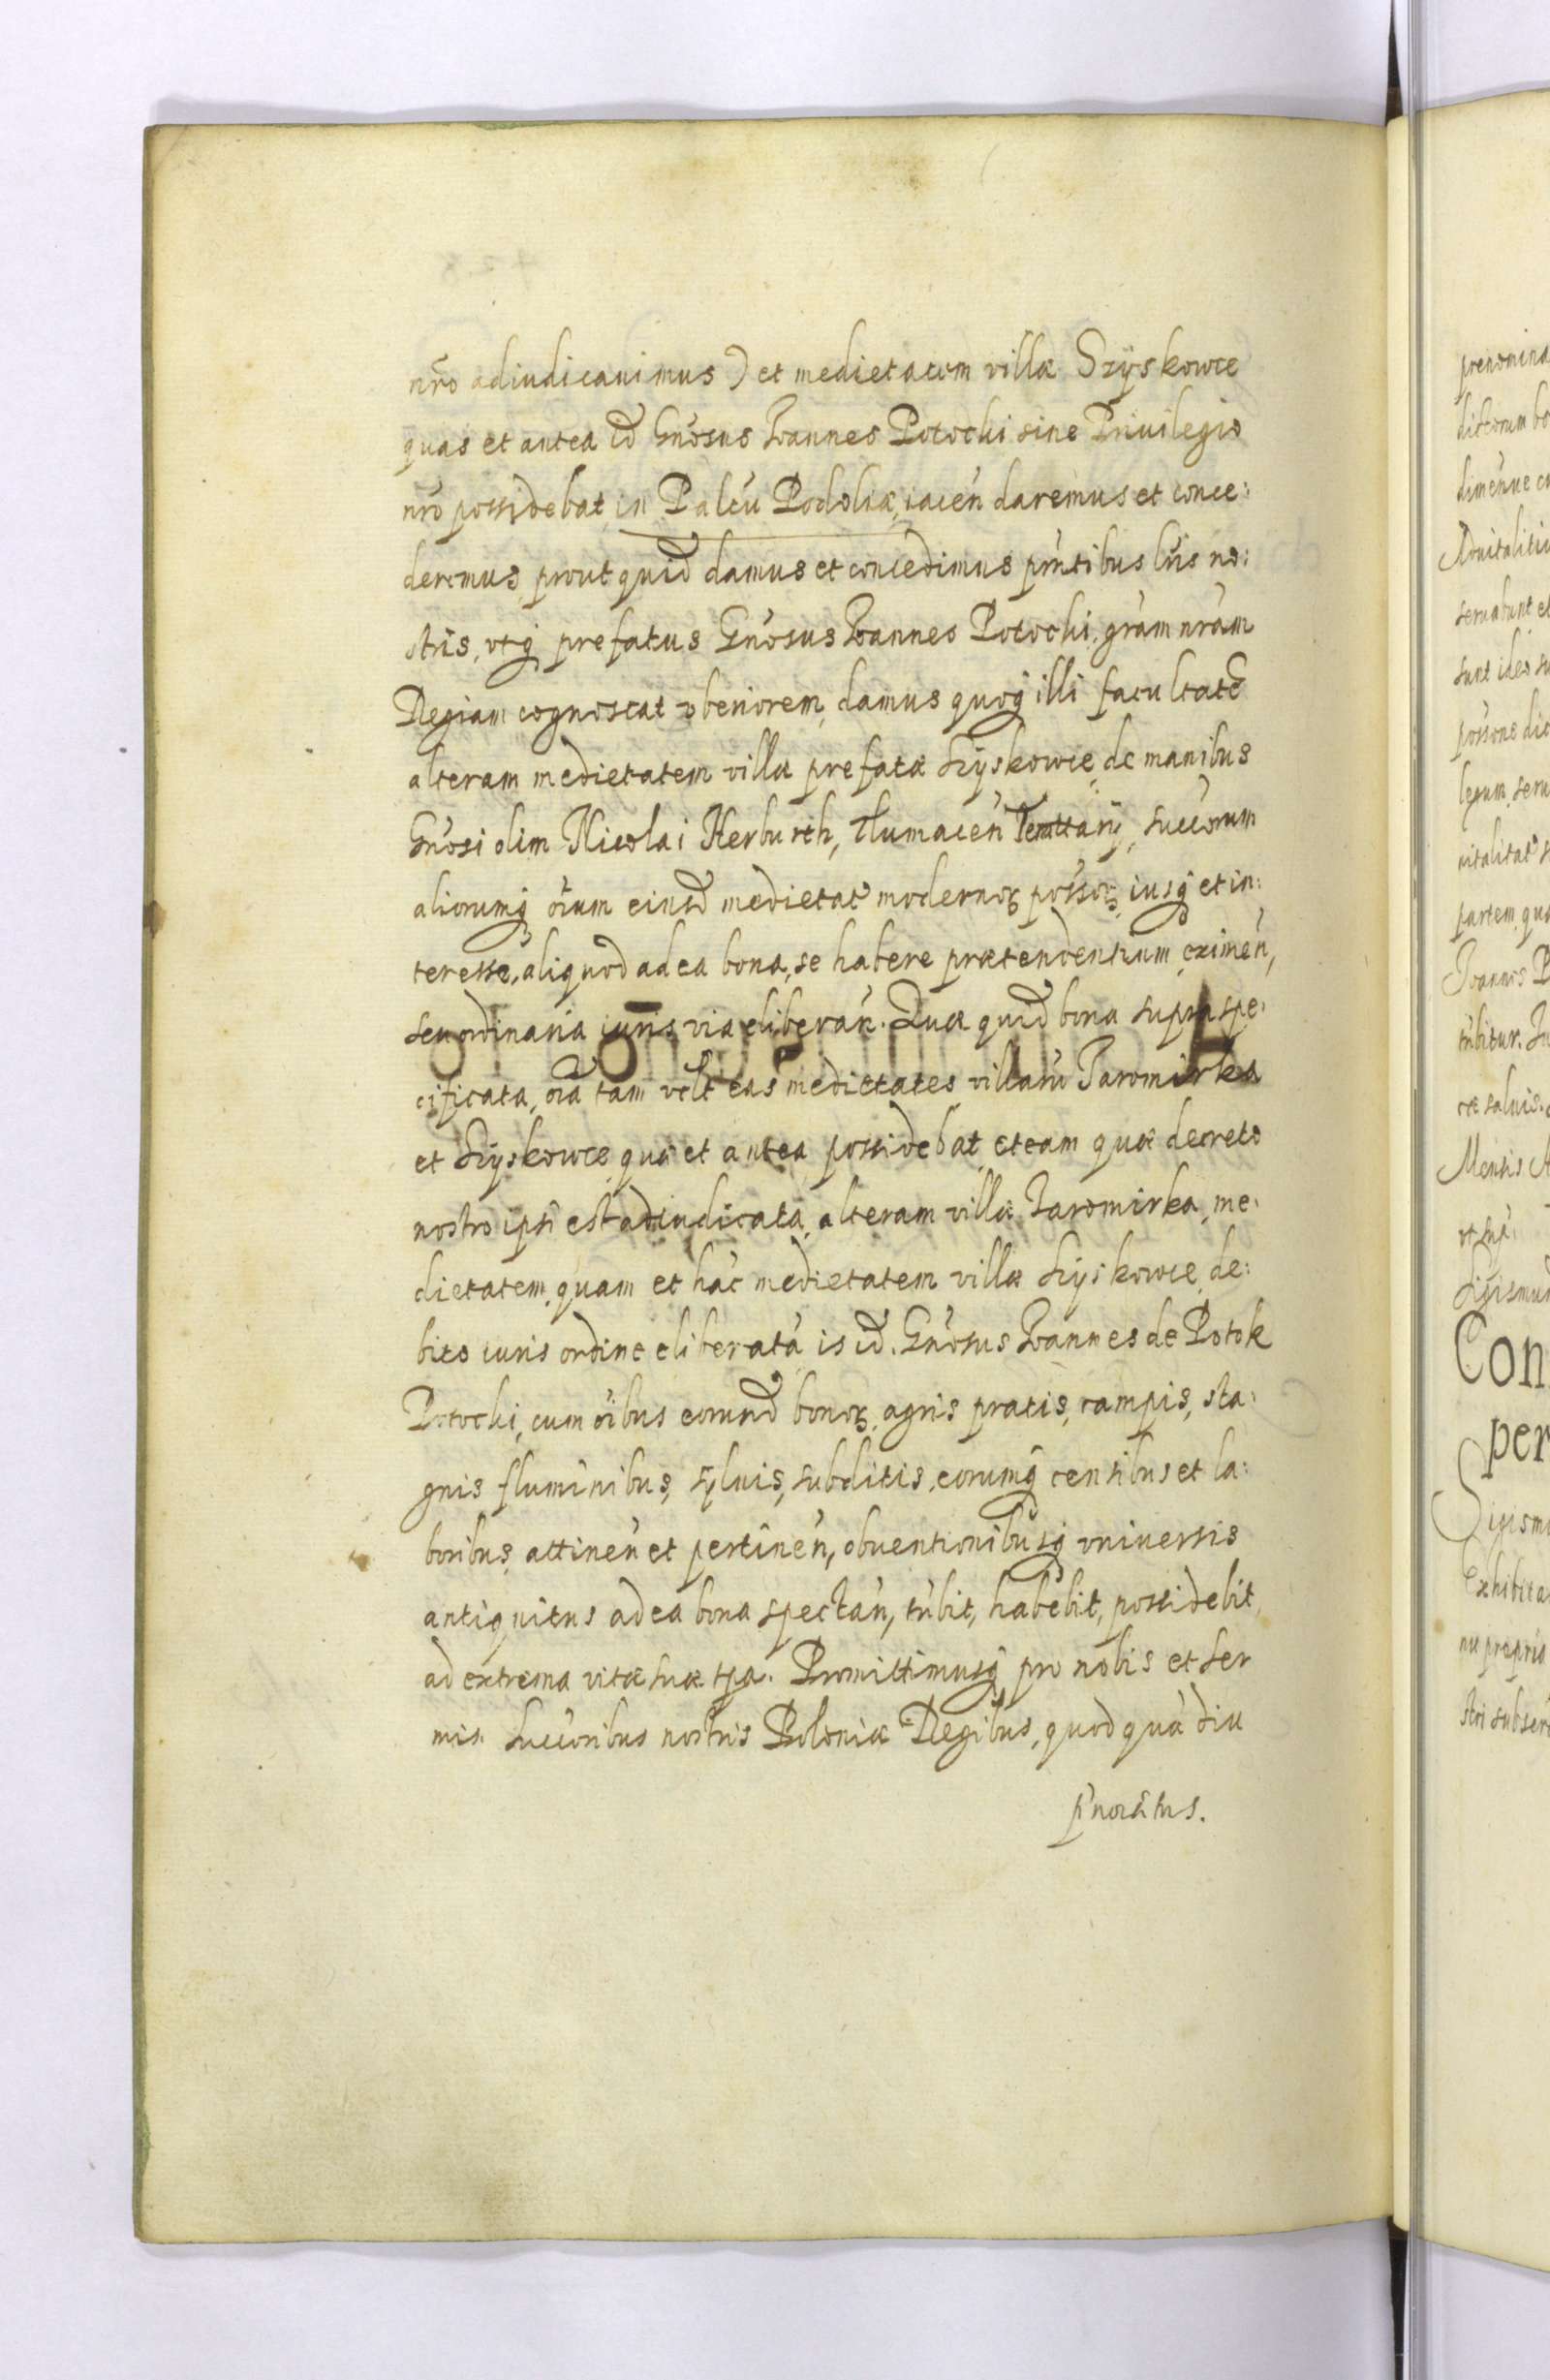 nr̃o adiudicauimus) et medietatem villæ Szÿskowce
quas et antea id̃ Gn̄osus Ioannes Potochi sine Priuilegio
nr̃o possidebat, in Palc̃u Podoliæ, iacen̄ daremus et conce:
deremus, prout quid̃ damus et concedimus pn̄tibus lr̃is no:
stris, vtq̨ prefatus Gn̄osus Ioannes Potochi, gr̃am nr̃am
Regiam cognoscat vberiorem, damus quoq̨ illi facultatē
alteram medietatem villæ prefatæ Szÿskowce, de manibus
Gn̄osi olim Nicolai Herburth, Tlumacen̄ Tenuttarÿ, succ̃orum
aliorumq̨ oīum eiusd̃ medietat̃ modernoꝝ poss̃oꝝ, iusq̨ et in:
teresse, aliquod ad ea bona, se habere prætendentium, eximen̄,
seu ordinaria iuris via eliberan̄. Quæ quid̃ bona supra spe:
cificata, oīa tam vclt eas medietates villarū Jaromirka
et Szÿskowce, quā et antea possidebat, et eam quæ decreto
nostro ipsi est adiudicata, alteram villæ Jaromirka, me:
dietatem, quam et hāc medietatem villæ Szÿskowce, de:
bito iuris ordine eliberatā is id̃. Gn̄osus Ioannes de Potok
Potochi, cum oībus eorund̃ bonoꝝ, agris pratis, campis, sta:
gnis fluminibus, sÿluis, subditis, eorumq̨ censibus et la:
boribus, attinen̄ et pertinen̄, obuentionibusq̨ vniuersis
antiquitus ad ea bona spectan̄, tn̄bit, habebit, possidebit,
ad extrema vitæ suæ tp̃a. Promittimusq̨ pro nobis et Ser
mis. Succ̃oribus nostris Poloniæ Regibus, quod quā diu
p̄noīatus.